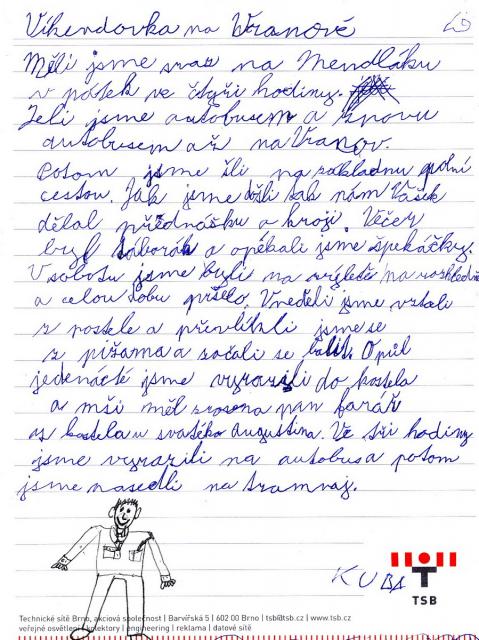 Víkendovka na Vranově
Měli jsme sraz na Mendláku
v pátek ve čtyři hodiny.
Jeli jsme autobusem a znovu
autobusem až na Vranov.
Potom jsme šli na základnu polní
cestou. Jak jsme došli tak nám Vašek
dělal přednášku o kroji. Večer
byl táborák a opékali jsme špekáčky.
V sobotu jsme byli na výletě na rozhledně
a celou dobu pršelo. V neděli jsme vstali
z postele a převlíkli jsme se
z pižama a začali se balit. O půl
jedenácté jsme vyrazili do kostela
a mši měl zrovna pan farář
z kostela u svatého Augustina. Ve tři hodiny
jsme vyrazili na autobus a potom
jsme nasedli na tramvaj.
KUBA
TSB
Technické sítě Brno, akciová společnost | Barvířská 5 | 602 00 Brno | tsb@tsb.cz | www.tsb.cz
veřejné osvětlení | kolektory | engineering | reklama | datové sítě